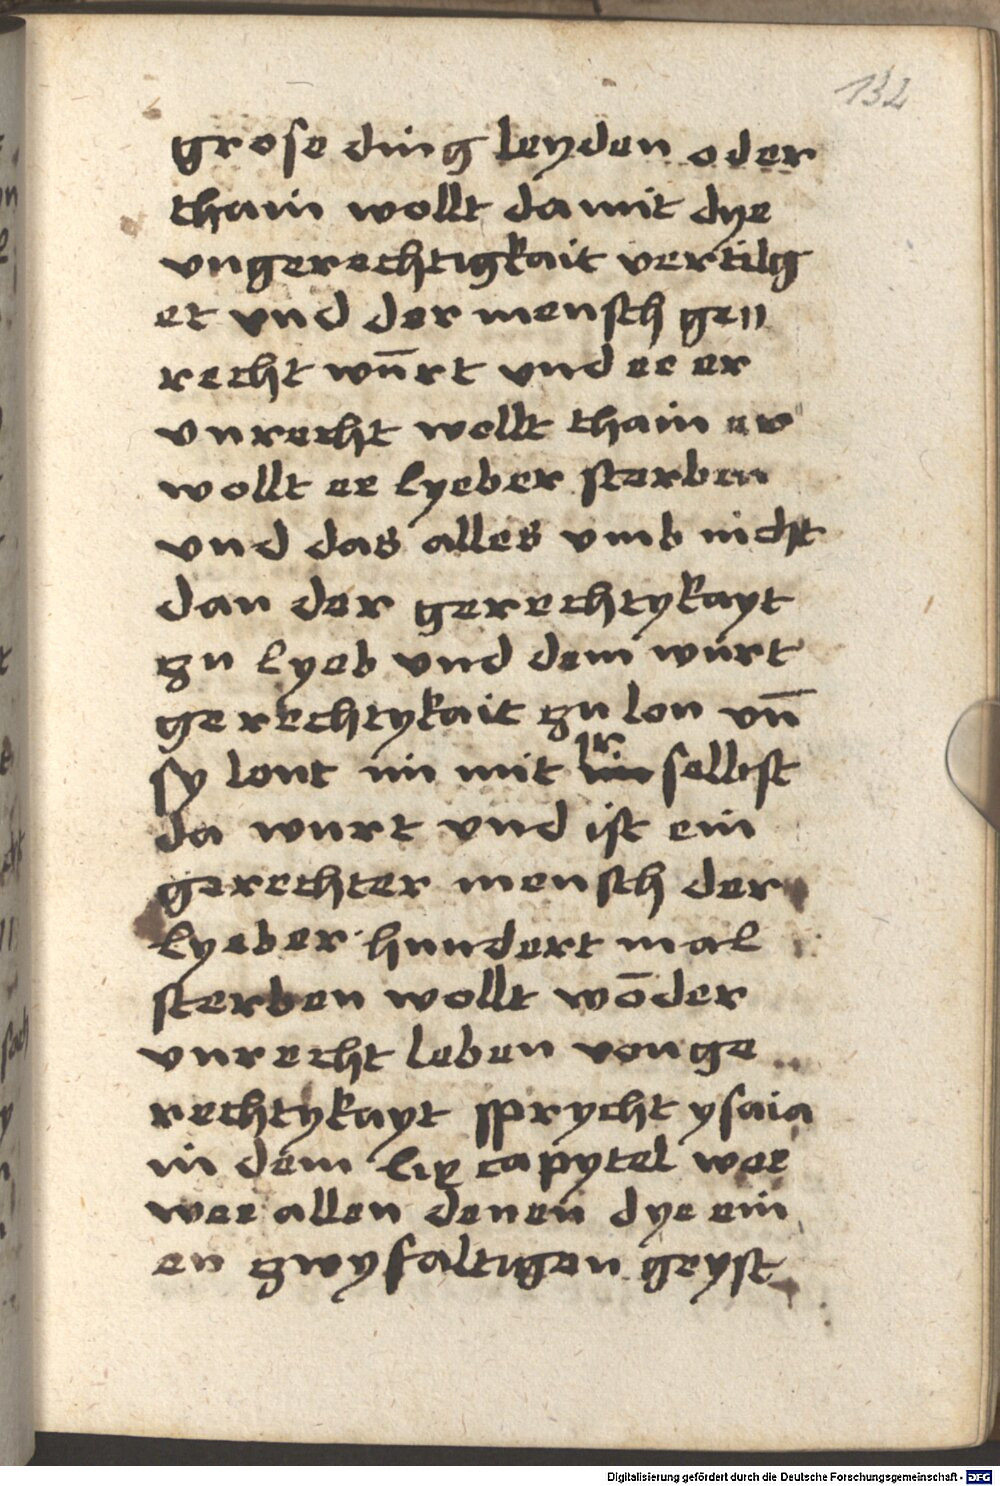 132
grose ding leyden oder
thain wollt damit dye
vngerechtigkait vertilg
et vnd der mensch ge〃
recht wn̄rt vnd ee er
vnrecht wollt thain er
wollt ee lyeber sterben
vnd das alles vmb nicht
dan der gerechtykayt
zu lyeb vnd dem wurt
gerechtykait zu lon vn̄
sy lont im mit ir selbst
da wurt vnd ist ein
gerechter mensch der
lyeber hundert mal
sterben wollt wōder
vnrecht leben von ge
rechtykayt sprycht ysaia
in dem lix capytel wee
wee allen denen dye ein
en zwyfaltigen geyst
Digitalisierung gefördert durch die Deutsche Forschungsgemeinschaft - DFG